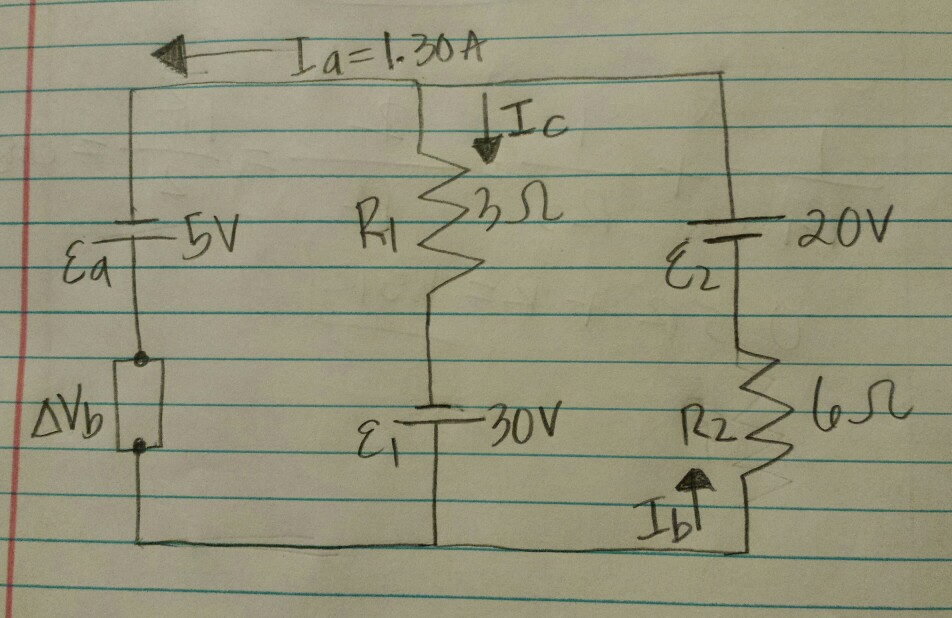 Ia=1.30A
Ic
R1
3Ω
5V
εa
20V
ε2
ΔVb
ε1
30V
R2
6Ω
Ib